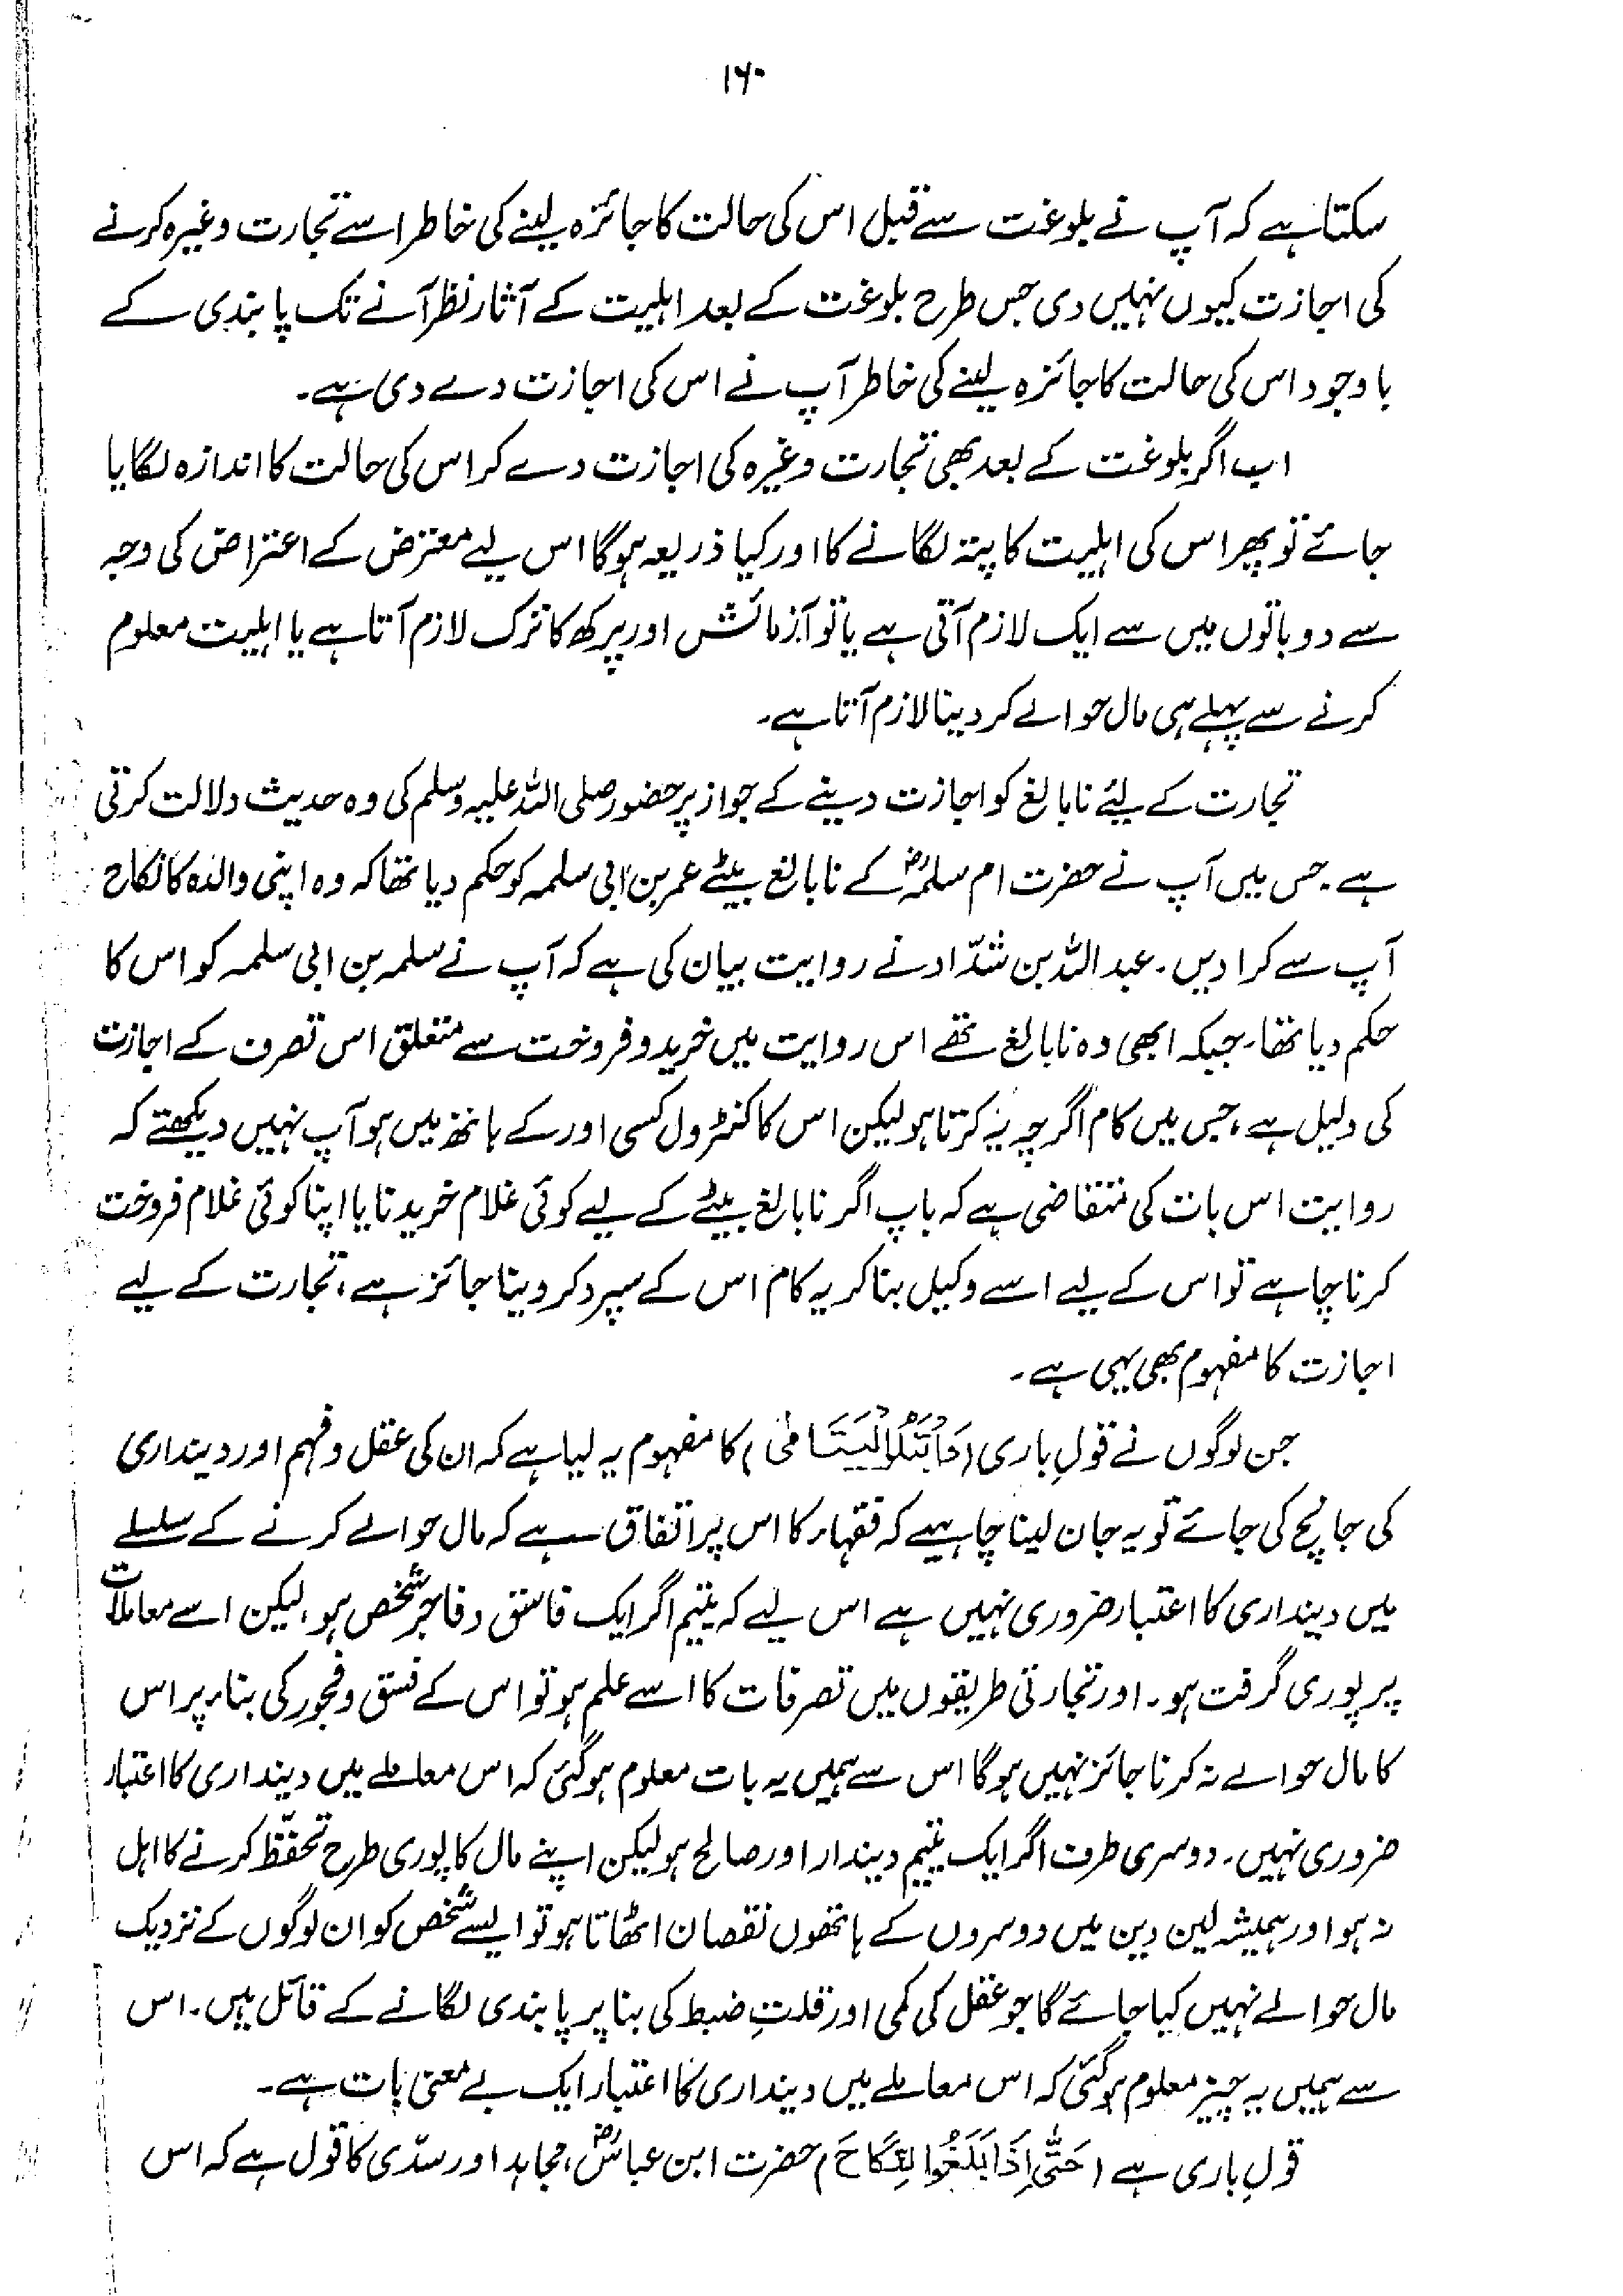 ۱۶۰
سکتا ہے کہ آپ نے بلوغت سے قبل اس کی حالت کا جائزہ لینے کی خاطر اسے تجارت وغیرہ کرنے
کی اجازت کیوں نہیں دی جس طرح بلوغت کے بعد اہلیت کے آثار نظر آنے تک پابندی کے
باوجود اس کی حالت کا جائزہ لینے کی خاطر آپ نے اس کی اجازت دے دی ہے۔
اب اگر بلوغت کے بعد بھی تجارت وغیرہ کی اجازت دے کر اس کی حالت کا اندازہ لگایا
جائے تو پھر اس کی اہلیت کا پتہ لگانے کا اور کیا ذریعہ ہوگا اس لیے معترض کے اعتراض کی وجہ
سے دو باتوں میں سے ایک لازم آتی ہے یا تو آزمائش اور پرکھ کا ترک لازم آتا ہے یا اہلیت معلوم
کرنے سے پہلے ہی مال حوالے کر دینا لازم آتا ہے۔
تجارت کے لیئے نابالغ کو اجازت دینے کے جواز پر حضور صلی اللہ علیہ وسلم کی وہ حدیث دلالت کرتی
ہے۔ جس میں آپ نے حضرت ام سلمہؓ کے نابالغ بیٹے عمر بن ابی سلمہ کو حکم دیا تھا کہ وہ اپنی والدہ کا نکاح
آپ سے کرا دیں۔ عبداللہ بن شدّاد نے روایت بیان کی ہے کہ آپ نے سلمہ بن ابی سلمہ کو اس کا
حکم دیا تھا۔ جبکہ ابھی وہ نابالغ تھے اس روایت میں خرید و فروخت سے متعلق اس تصرف کے اجازت
کی دلیل ہے، جس میں کام اگرچہ یہ کرتا ہو لیکن اس کا کنٹرول کسی اور کے ہاتھ میں ہو آپ نہیں دیکھتے کہ
روایت اس بات کی متقاضی ہے کہ باپ اگر نابالغ بیٹے کے لیے کوئی غلام خریدنا یا اپنا کوئی غلام فروخت
کرنا چاہے تو اس کے لیے اسے وکیل بنا کر یہ کام اس کے سپرد کر دینا جائز ہے، تجارت کے لیے
اجازت کا مفہوم بھی یہی ہے۔
جن لوگوں نے قولِ باری (وَابْتَلُوا الْيَتَامٰى) کا مفہوم یہ لیا ہے کہ ان کی عقل و فہم اور دینداری
کی جانچ کی جائے تو یہ جان لینا چاہیے کہ فقہاء کا اس پر اتفاق ہے کہ مال حوالے کرنے کے سلسلے
میں دینداری کا اعتبار ضروری نہیں ہے اس لیے کہ یتیم اگر ایک فاسق و فاجر شخص ہو، لیکن اسے معاملات
پر پوری گرفت ہو۔ اور تجارتی طریقوں میں تصرفات کا اسے علم ہو تو اس کے فسق و فجور کی بناء پر اس
کا مال حوالے نہ کرنا جائز نہیں ہوگا اس سے ہمیں یہ بات معلوم ہوگئی کہ اس معاملے میں دینداری کا اعتبار
ضروری نہیں۔ دوسری طرف اگر ایک یتیم دیندار اور صالح ہو لیکن اپنے مال کا پوری طرح تحفّظ کرنے کا اہل
نہ ہو اور ہمیشہ لین دین میں دوسروں کے ہاتھوں نقصان اٹھاتا ہو تو ایسے شخص کو ان لوگوں کے نزدیک
مال حوالے نہیں کیا جائے گا جو عقل کی کمی اور قلتِ ضبط کی بنا پر پابندی لگانے کے قائل ہیں۔ اس
سے ہمیں یہ چیز معلوم ہوگئی کہ اس معاملے میں دینداری کا اعتبار ایک بے معنی بات ہے۔
قولِ باری ہے (حَتّٰى اِذَا بَلَغُوا النِّكَاحَ) حضرت ابن عباسؓ، مجاہد اور سدّی کا قول ہے کہ اس